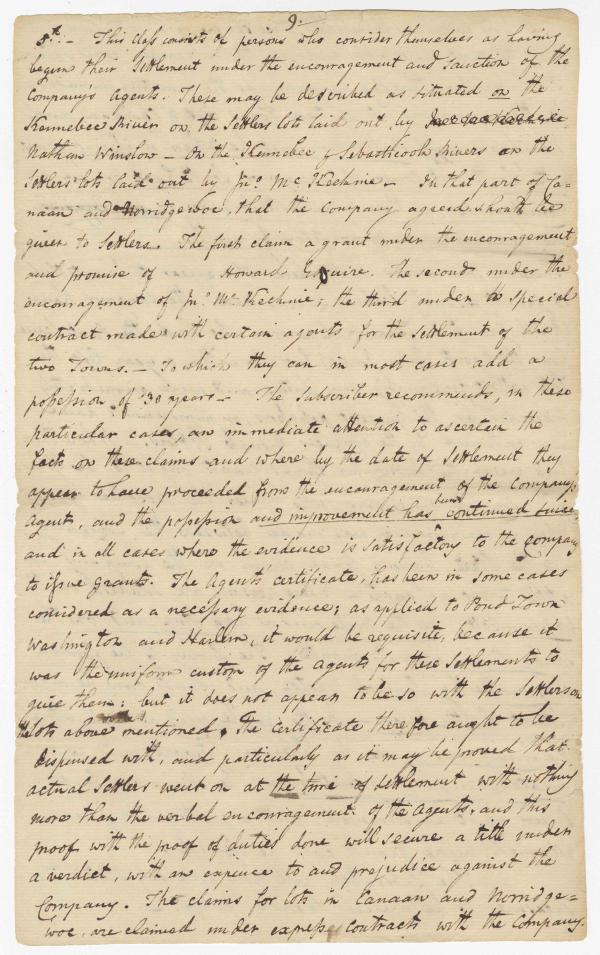 9.
8th. – This Class consists of persons who consider themselves as having
begun their Settlement under the encouragement and sanction of the
Company's Agents. These may be described as situated on the
Kennebec River on the Settlers lots laid out by
Nathan Winslow – On the Kennebec & Sebasticook Rivers on the
Settlers lots laid out by Jno. Mc Kechnie – In that part of Ca-
naan and Norridgewoc, that the Company agreed should be
given to Settlers. The first claim a grant under the encouragement
and promise of Howard Esquire. The second under the
encouragement of Jno. Mc Kechnie; the third under a special
contract made with certain agents for the settlement of the
two Towns. – To which they can in most cases add a
possession of 30 years – The Subscriber recommends, in these
particular cases, an immediate attention to ascertain the
facts on these claims and where by the date of Settlement they
appear to have proceeded from the encouragement of the Company's
Agent, and the possession and improvement has been continued since
and in all cases where the evidence is satisfactory to the company
to issue grants. The Agents' certificate, has been in some cases
considered as a necessary evidence; as applied to Pond Town
Washington and Harlem, it would be requisite, because it
was the uniform custom of the agents for these Settlements to
give them; but it does not appear to be so with the Settlers on
the lots above mentioned. The certificate therefore aught to be
dispensed with, and particularly as it may be proved that
actual Settlers went on at the time of settlement with nothing
more than the verbal encouragement of the Agents, and this
proof with the proof of duties done will secure a title under
a verdict, with an expence to and prejudice against the
Company. The claims for lots in Canaan and Norridge=
woc, are claimed under express contracts with the Company.